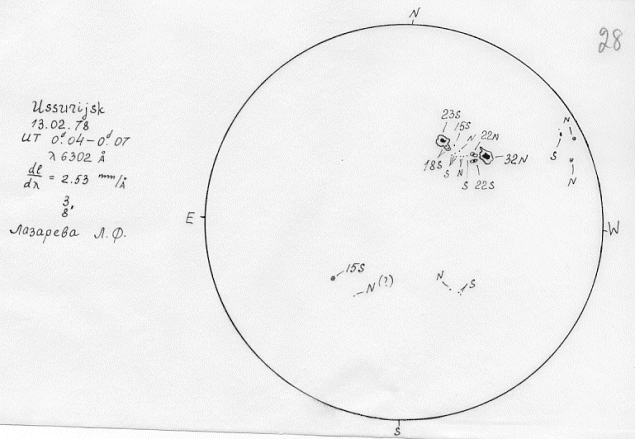 N
28
Ussurijsk
13.02.78
UT 0ᵈ.04–0ᵈ.07
λ 6302 Å
dl/dλ = 2.53 mm/Å
3
8"
Лазарева Л.Ф.
23S
15S
N
22N
18S
S
N
S
22S
32N
N
S
N
E
W
15S
N(?)
N
S
S